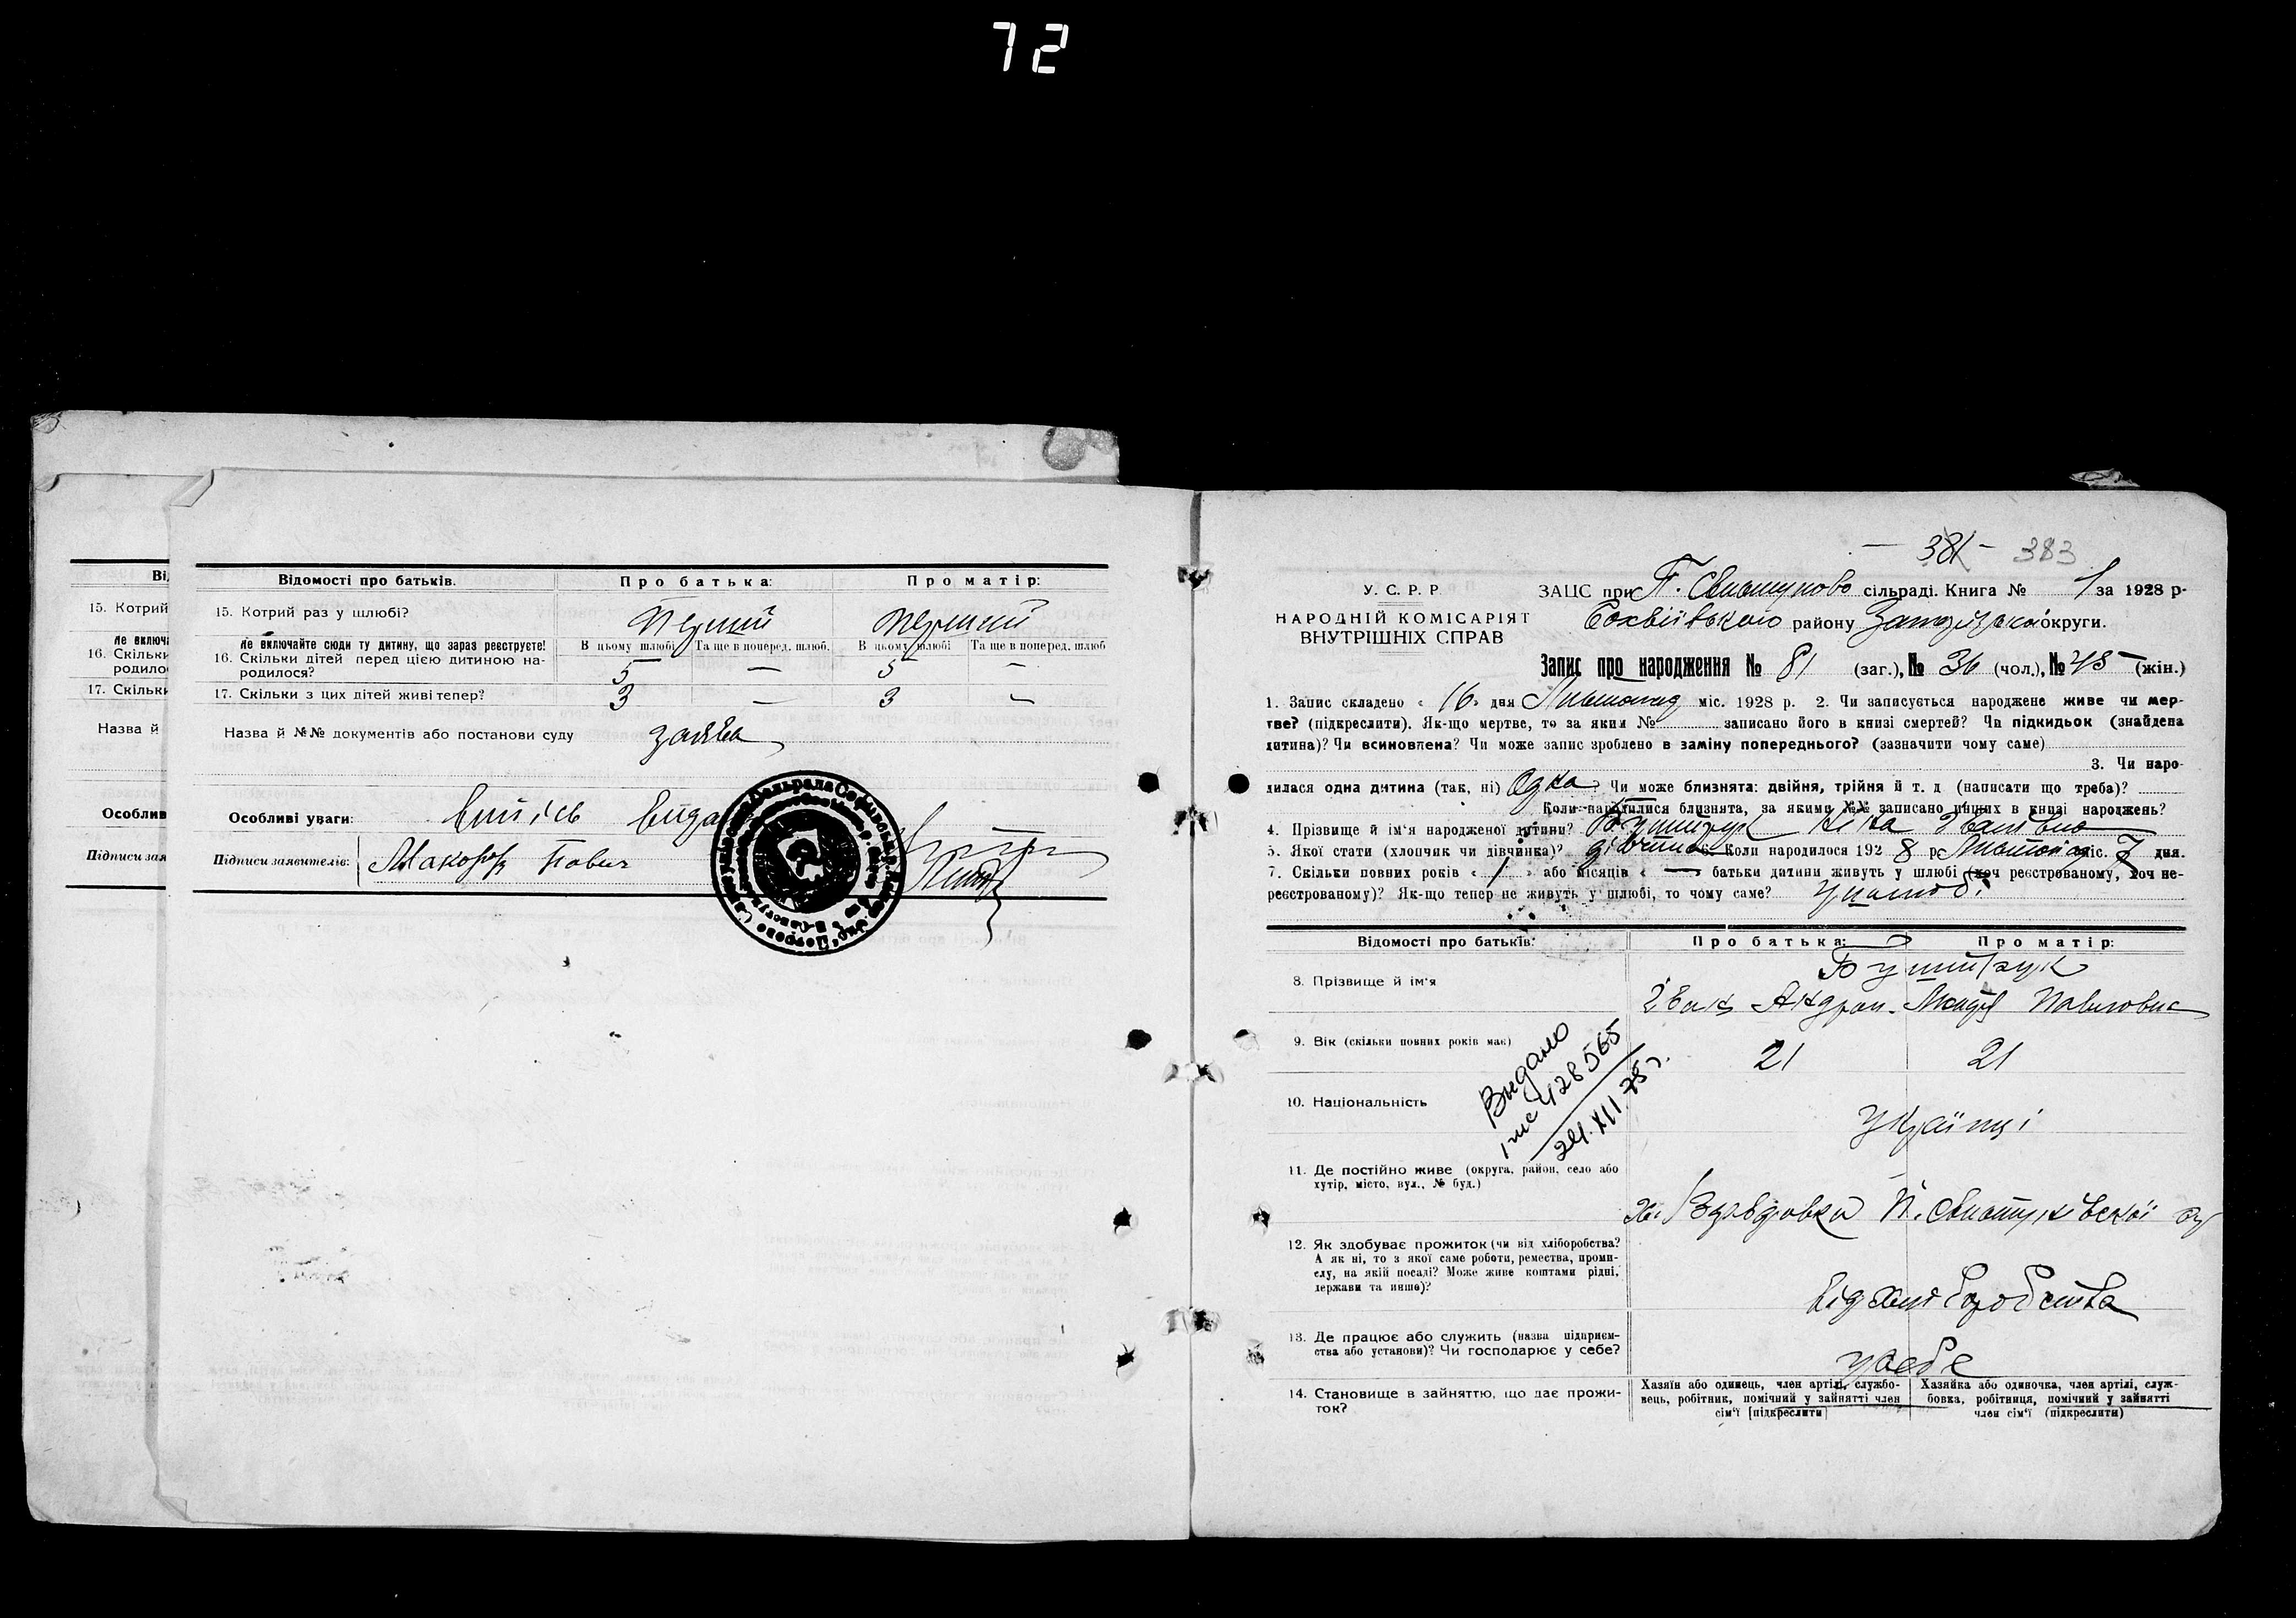 72
Ві
15. Котрий
не включа
16. Скільки
родило
17. Скільки
Назва й
Особлив
Підписи зая
Відомості про батьків. Про батька: Про матір:
15. Котрий раз у шлюбі? Перший перший
не включайте сюди ту дитину, що зараз реєструєте! В цьому шлюбі Та ще в поперед. шлюб. В цьому шлюбі Та ще в поперед. шлюб
16. Скільки дітей перед цією дитиною на- 5 — 5 —
родилося?
17. Скільки з цих дітей живі тепер? 3 — 3 —
Назва й №№ документів або постанови суду заява
Особливі уваги:
Підписи заявителів:
— 381 — 383
У. С. Р. Р.
НАРОДНІЙ КОМІСАРІЯТ
ВНУТРІШНІХ СПРАВ
ЗАЦС при П. сільраді. Книга № 1 за 1928 р.
району округи.
Запис про народження № 81 (заг.), № 36 (чол.), № 45 (жін.)
1. Запис складено « 16 » дня Листопад міс. 1928 р. 2. Чи записується народжене живе чи мер-
тве? (підкреслити). Як-що мертве, то за яким № записано його в книзі смертей? Чи підкидьок (знайдена
дитина)? Чи всиновлена? Чи може запис зроблено в заміну попереднього? (зазначити чому саме)
3. Чи наро-
дилася одна дитина (так, ні) Одна Чи може близнята: двійня, трійня й т. д (написати що треба)?
Коли народилися близнята, за якими №№ записано инших в книзі народжень?
4. Прізвище й ім'я народженої дитини? Івановна
5. Якої стати (хлопчик чи дівчинка)? дівчинка 6. Коли народилося 192 8 р. Листопад міс. 7 дня.
7. Скільки повних років « 1 » або місяців « — » батьки дитини живуть у шлюбі (хоч реєстрованому, хоч не-
реєстрованому)? Як-що тепер не живуть у шлюбі, то чому саме? у шлюбі
Відомості про батьків: Про батька: Про матір:
8. Прізвище й ім'я
Іван Андрон. Павловна
9. Вік (скільки повних років має) 21 21
Выдано
428565
24.XII.75 г.
10. Національність Українці
11. Де постійно живе (округа, район, село або
хутір, місто, вул., № буд.)
12. Як здобуває прожиток (чи від хліборобства?
А як ні, то з якої саме роботи, ремества, проми-
слу, на якій посаді? Може живе коштами рідні,
держави та инше)?
від хліборобства
13. Де працює або служить (назва підприєм-
ства або установи)? Чи господарює у себе?
у себе
14. Становище в зайняттю, що дає прожи-
ток?
Хазяїн або одинець, член артілі, службо-
вець, робітник, помічний у зайнятті член
сім'ї [підкреслити]
Хазяйка або одиночка, член артілі, служ-
бовка, робітниця, помічний у зайнятті
член сім'ї (підкреслити)